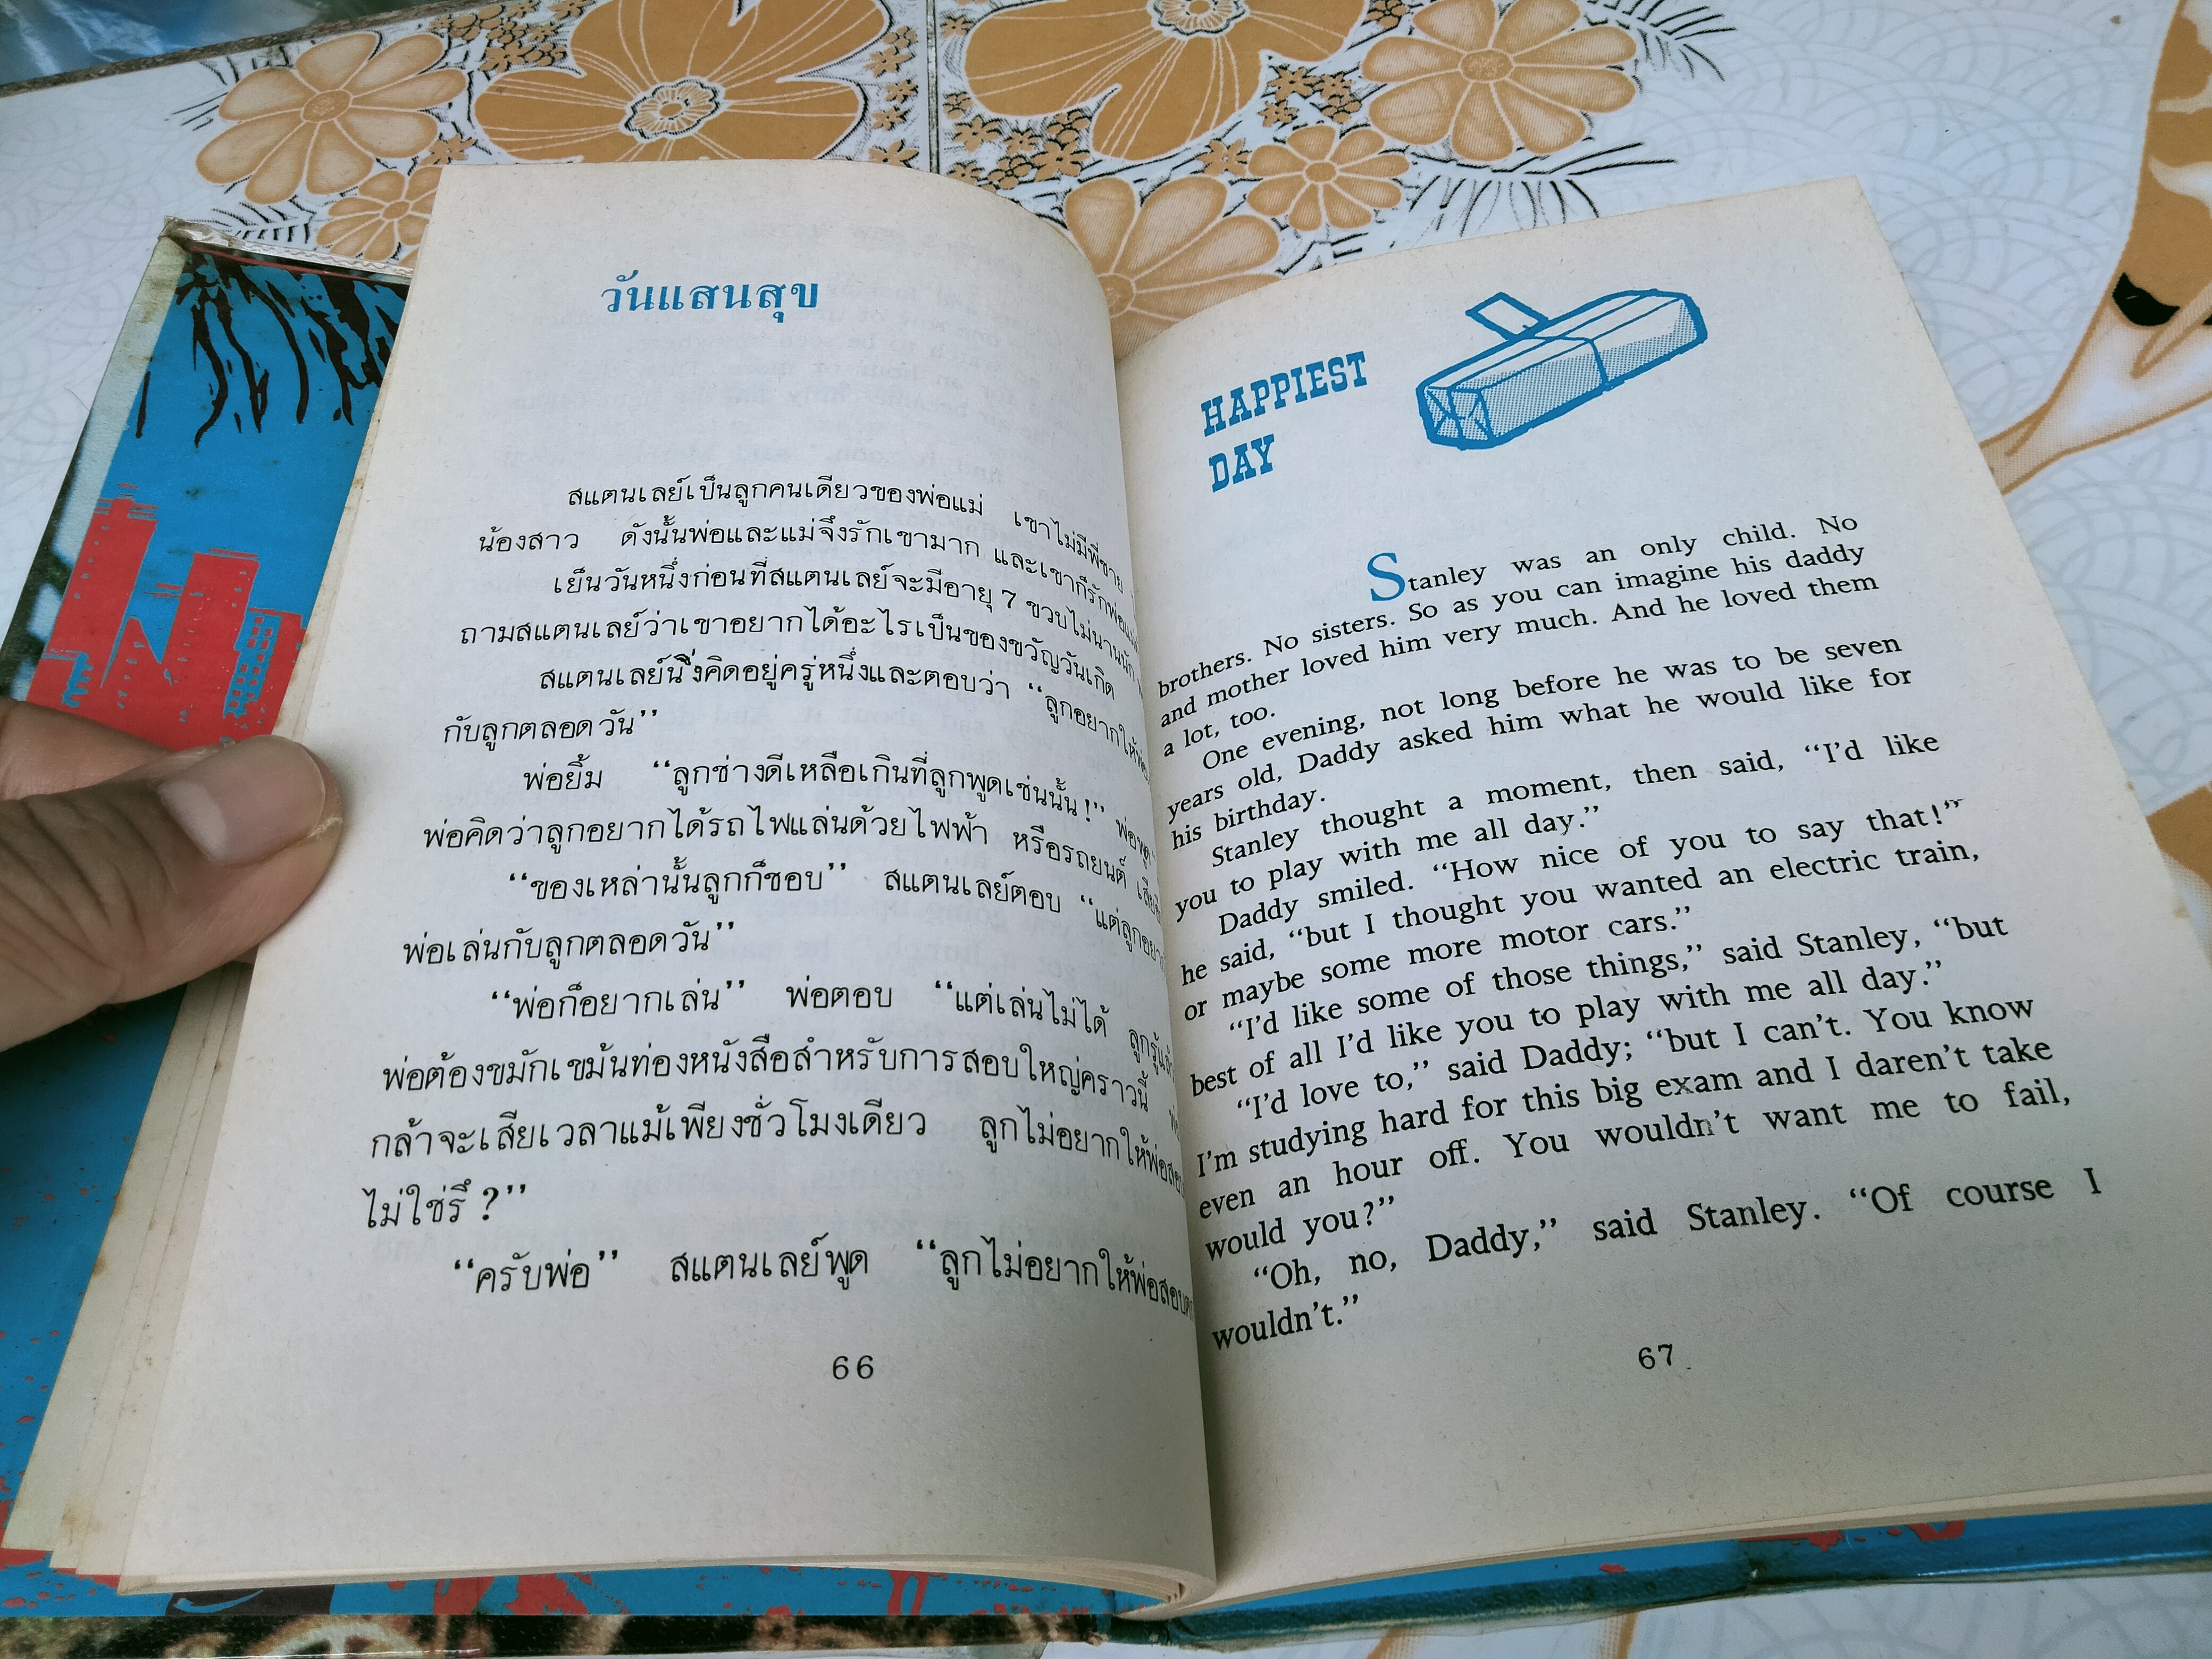 วันแสนสุข
สแตนเลย์เป็นลูกคนเดียวของพ่อแม่ เขาไม่มีพี่ชาย
น้องสาว ดังนั้นพ่อและแม่จึงรักเขามาก และเขาก็รักพ่อแม่
เย็นวันหนึ่งก่อนที่สแตนเลย์จะมีอายุ 7 ขวบไม่นานนัก
ถามสแตนเลย์ว่าเขาอยากได้อะไรเป็นของขวัญวันเกิด
สแตนเลย์นิ่งคิดอยู่ครู่หนึ่งและตอบว่า “ลูกอยากให้พ่อ
กับลูกตลอดวัน”
พ่อยิ้ม “ลูกช่างดีเหลือเกินที่ลูกพูดเช่นนั้น!” พ่อพูด
พ่อคิดว่าลูกอยากได้รถไฟแล่นด้วยไฟฟ้า หรือรถยนต์
“ของเหล่านั้นลูกก็ชอบ” สแตนเลย์ตอบ “แต่ลูกอยาก
พ่อเล่นกับลูกตลอดวัน”
“พ่อก็อยากเล่น” พ่อตอบ “แต่เล่นไม่ได้ ลูกรู้แล้ว
พ่อต้องขมักเขม้นท่องหนังสือสำหรับการสอบใหญ่คราวนี้
กล้าจะเสียเวลาแม้เพียงชั่วโมงเดียว ลูกไม่อยากให้พ่อสอบ
ไม่ใช่รึ ?”
“ครับพ่อ” สแตนเลย์พูด “ลูกไม่อยากให้พ่อสอบตก
66
HAPPIEST
DAY
Stanley was an only child. No
brothers. No sisters. So as you can imagine his daddy
and mother loved him very much. And he loved them
a lot, too.
One evening, not long before he was to be seven
years old, Daddy asked him what he would like for
his birthday.
Stanley thought a moment, then said, “I’d like
you to play with me all day.”
Daddy smiled. “How nice of you to say that!”
he said, “but I thought you wanted an electric train,
or maybe some more motor cars.”
“I’d like some of those things,” said Stanley, “but
best of all I’d like you to play with me all day.”
“I’d love to,” said Daddy; “but I can’t. You know
I’m studying hard for this big exam and I daren’t take
even an hour off. You wouldn’t want me to fail,
would you?”
“Oh, no, Daddy,” said Stanley. “Of course I
wouldn’t.”
67